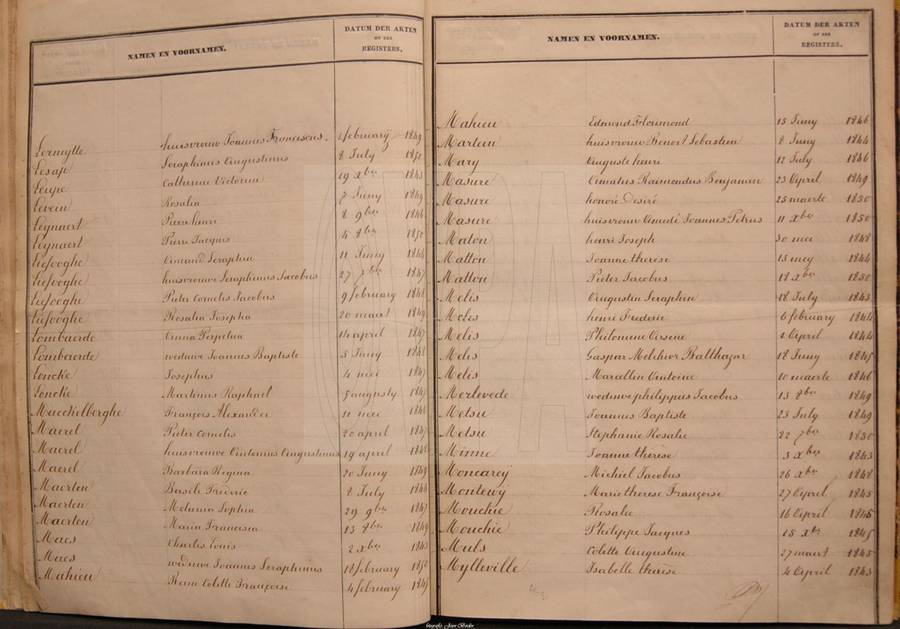 NAMEN EN VOORNAMEN. DATUM DER AKTEN OF DER REGISTERS.
Lermytte huisvrouw Joannus Franciscus february 1849
Lesap Seraphinus Augustinus 8 July 1850
Leupe Catherine Victorine 19 Xber 1843
Levein Rosalia 7 Juny 1849
Leynaert Pierre henri 8 9ber 1846
Leynaert Pierre Jacques 4 8ber 1850
Liefooghe Armand Seraphin 11 Juny 1844
Liefooghe huisvrouw Seraphinus Jacobus 27 7ber 1847
Liefooghe Pieter Cornelis Jacobus 9 february 1848
Liefooghe Rosalia Josepha 20 maart 1849
Lombaerde Anna Perpetua 14 april 1847
Lombaerde weduwe Joannus Baptiste 5 Juny 1848
Loncke Josephus 4 mei 1847
Loncke Martinus Raphael augusty 1847
Maeckelberghe François Alexander 11 mei 1848
Maerel Pieter Cornelis 20 april 1847
Maerel huisvrouwe Antonius Augustinus 19 april 1848
Maerel Barbara Regina 20 Juny 1849
Maerten Basile Frederic 8 July 1846
Maerten Melania Sophia 29 9ber 1847
Maerten Maria Francisca 13 8ber 1849
Maes Charles Louis 2 xber 1843
Maes weduwe Joannus Seraphinus 18 february 1850
Mahieu Reine Colette Françoise 4 february 1847
NAMEN EN VOORNAMEN. DATUM DER AKTEN OF DER REGISTERS.
Mahieu Edmond Florimond 15 Juny 1846
Martein huisvrouw Benoit Sebastien 8 Juny 1844
Mary Auguste henri 12 July 1846
Masure Amatus Raimondus Benjamin 23 April 1849
Masure honoré desiré 25 maerte 1850
Masure huisvrouw Amedé Joannes Petrus 11 Xber 1850
Maton henri Joseph 30 mei 1848
Matton Jeanne therese 15 mey 1844
Matton Pieter Jacobus 18 Xber 1850
Melis Augustin Seraphin 18 July 1843
Melis henri Frederic 6 february 1844
Melis Philomine Arsene 2 April 1844
Melis Gaspar Melchior Balthazar 18 Juny 1845
Melis Marcellin Antoine 10 maerte 1846
Merlevede weduwe philippus Jacobus 13 8ber 1849
Metsu Joannes Baptiste 23 July 1849
Metsu Stephanie Rosalie 22 7ber 1850
Minne Jeanne thérèse 3 Xber 1843
Moncarey Michiel Jacobus 26 Xber 1848
Montewy Marie therese Françoise 27 April 1845
Mouchie Rosalie 16 April 1845
Mouchie Philippe Jacques 15 Xber 1845
Muls Colette Augustine 27 maart 1845
Mylleville Isabelle thérèse 4 April 1843